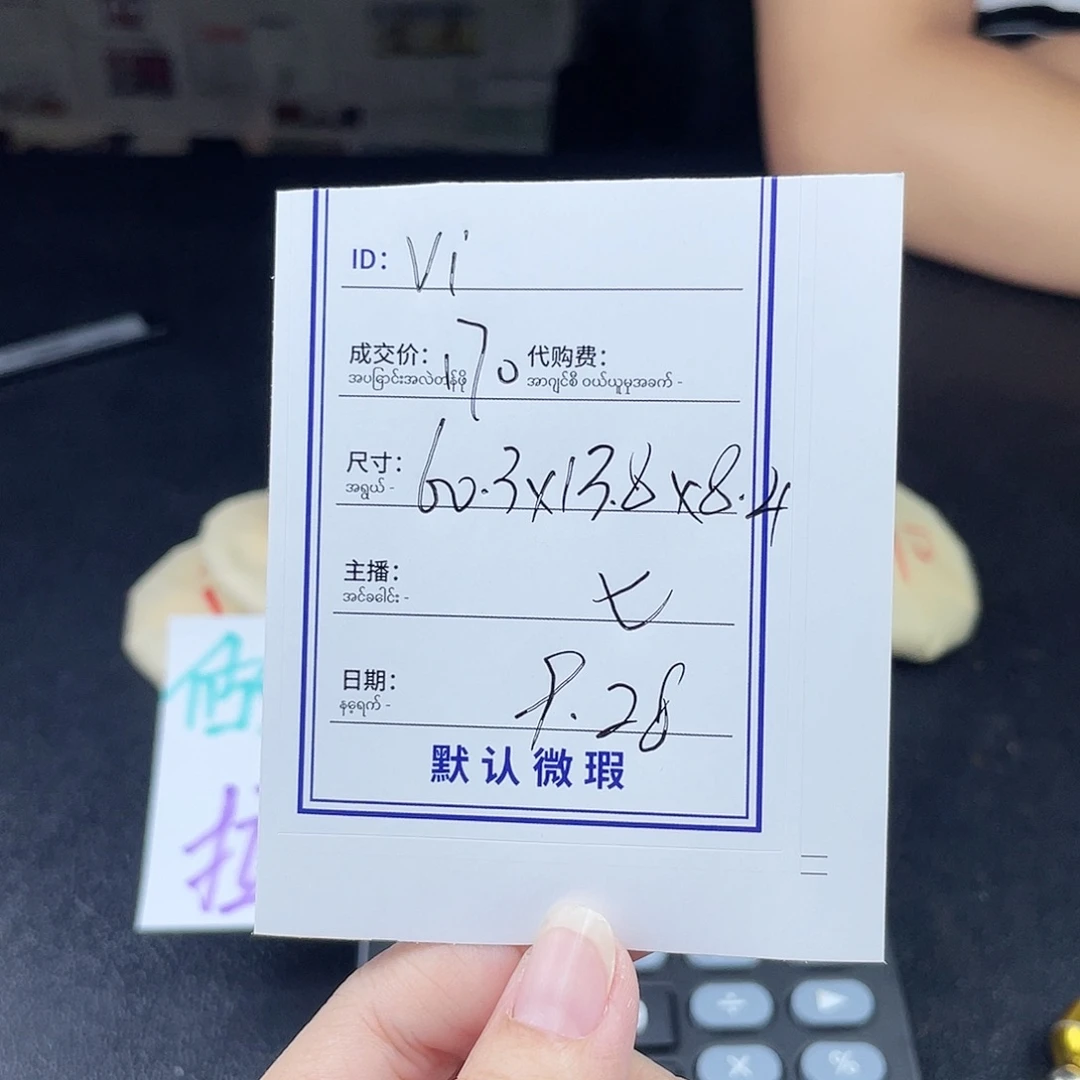 ID: Vi
成交价: 170 代购费:
အပြောင်းအလဲတန်ဖိုး အာဂျင်စီ ဝယ်ယူမှုအခက် -
尺寸: 60.3x13.8x8.4
အရွယ် -
主播: 七
အင်ခေါင်း -
日期: 9.28
နေ့ရက် -
默认微瑕